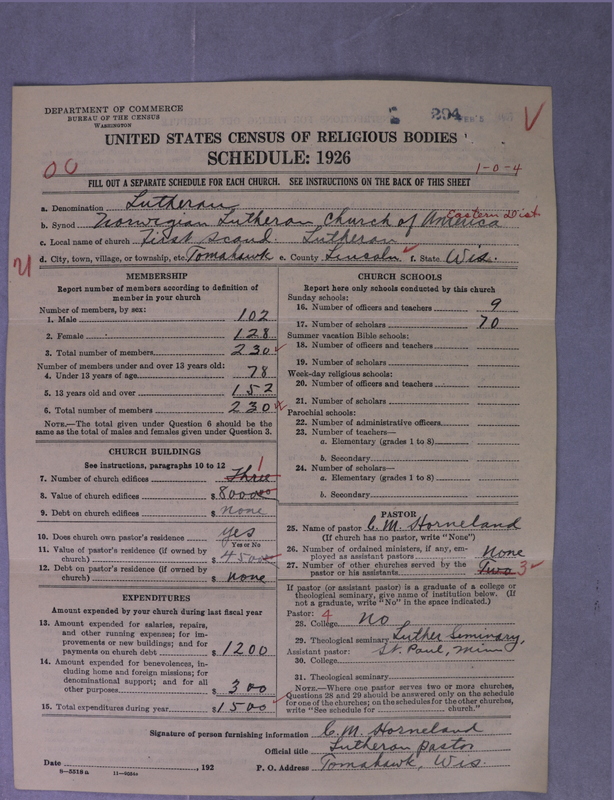 DEPARTMENT OF COMMERCE
BUREAU OF THE CENSUS
WASHINGTON
294
UNITED STATES CENSUS OF RELIGIOUS BODIES
SCHEDULE: 1926
1-0-4
FILL OUT A SEPARATE SCHEDULE FOR EACH CHURCH. SEE INSTRUCTIONS ON THE BACK OF THIS SHEET
a. Denomination Lutheran
b. Synod Norwegian Lutheran Church of America Eastern Dist
c. Local name of church First Scand. Lutheran
d. City, town, village, or township, etc. Tomahawk e. County Lincoln f. State Wis.
MEMBERSHIP
Report number of members according to definition of
member in your church
Number of members, by sex:
1. Male 102
2. Female 128
3. Total number of members 230
Number of members under and over 13 years old:
4. Under 13 years of age 78
5. 13 years old and over 152
6. Total number of members 230
NOTE.—The total given under Question 6 should be
same as the total of males and females given under Question 3.
CHURCH BUILDINGS
See instructions, paragraphs 10 to 12
7. Number of church edifices Three 1
8. Value of church edifices $ 8000
9. Debt on church edifices $ none
10. Does church own pastor's residence yes
Yes or No
11. Value of pastor's residence (if owned by
church) $ 4500
12. Debt on pastor's residence (if owned by
church) $ none
EXPENDITURES
Amount expended by your church during last fiscal year
13. Amount expended for salaries, repairs,
and other running expenses; for im-
provements or new buildings; and for
payments on church debt $ 1200
14. Amount expended for benevolences, in-
cluding home and foreign missions; for
denominational support; and for all
other purposes $ 300
15. Total expenditures during year $ 1500
CHURCH SCHOOLS
Report here only schools conducted by this church
Sunday schools:
16. Number of officers and teachers 9
17. Number of scholars 70
Summer vacation Bible schools:
18. Number of officers and teachers
19. Number of scholars
Week-day religious schools:
20. Number of officers and teachers
21. Number of scholars
Parochial schools:
22. Number of administrative officers
23. Number of teachers—
a. Elementary (grades 1 to 8)
b. Secondary
24. Number of scholars—
a. Elementary (grades 1 to 8)
b. Secondary
PASTOR
25. Name of pastor C. M. Horneland
(If church has no pastor, write "None")
26. Number of ordained ministers, if any, em-
ployed as assistant pastors none
27. Number of other churches served by the
pastor or his assistants Two 3
If pastor (or assistant pastor) is a graduate of a college or
theological seminary, give name of institution below. (If
not a graduate, write "No" in the space indicated.)
Pastor: 4
28. College No
29. Theological seminary Luther Seminary,
Assistant pastor: St. Paul, Minn
30. College
31. Theological seminary
NOTE.—Where one pastor serves two or more churches,
Questions 28 and 29 should be answered only on the schedule
for one of the churches; on the schedules for the other churches,
write "See schedule for church."
Signature of person furnishing information C. M. Horneland
Official title Lutheran pastor
Date , 192 P. O. Address Tomahawk, Wis.